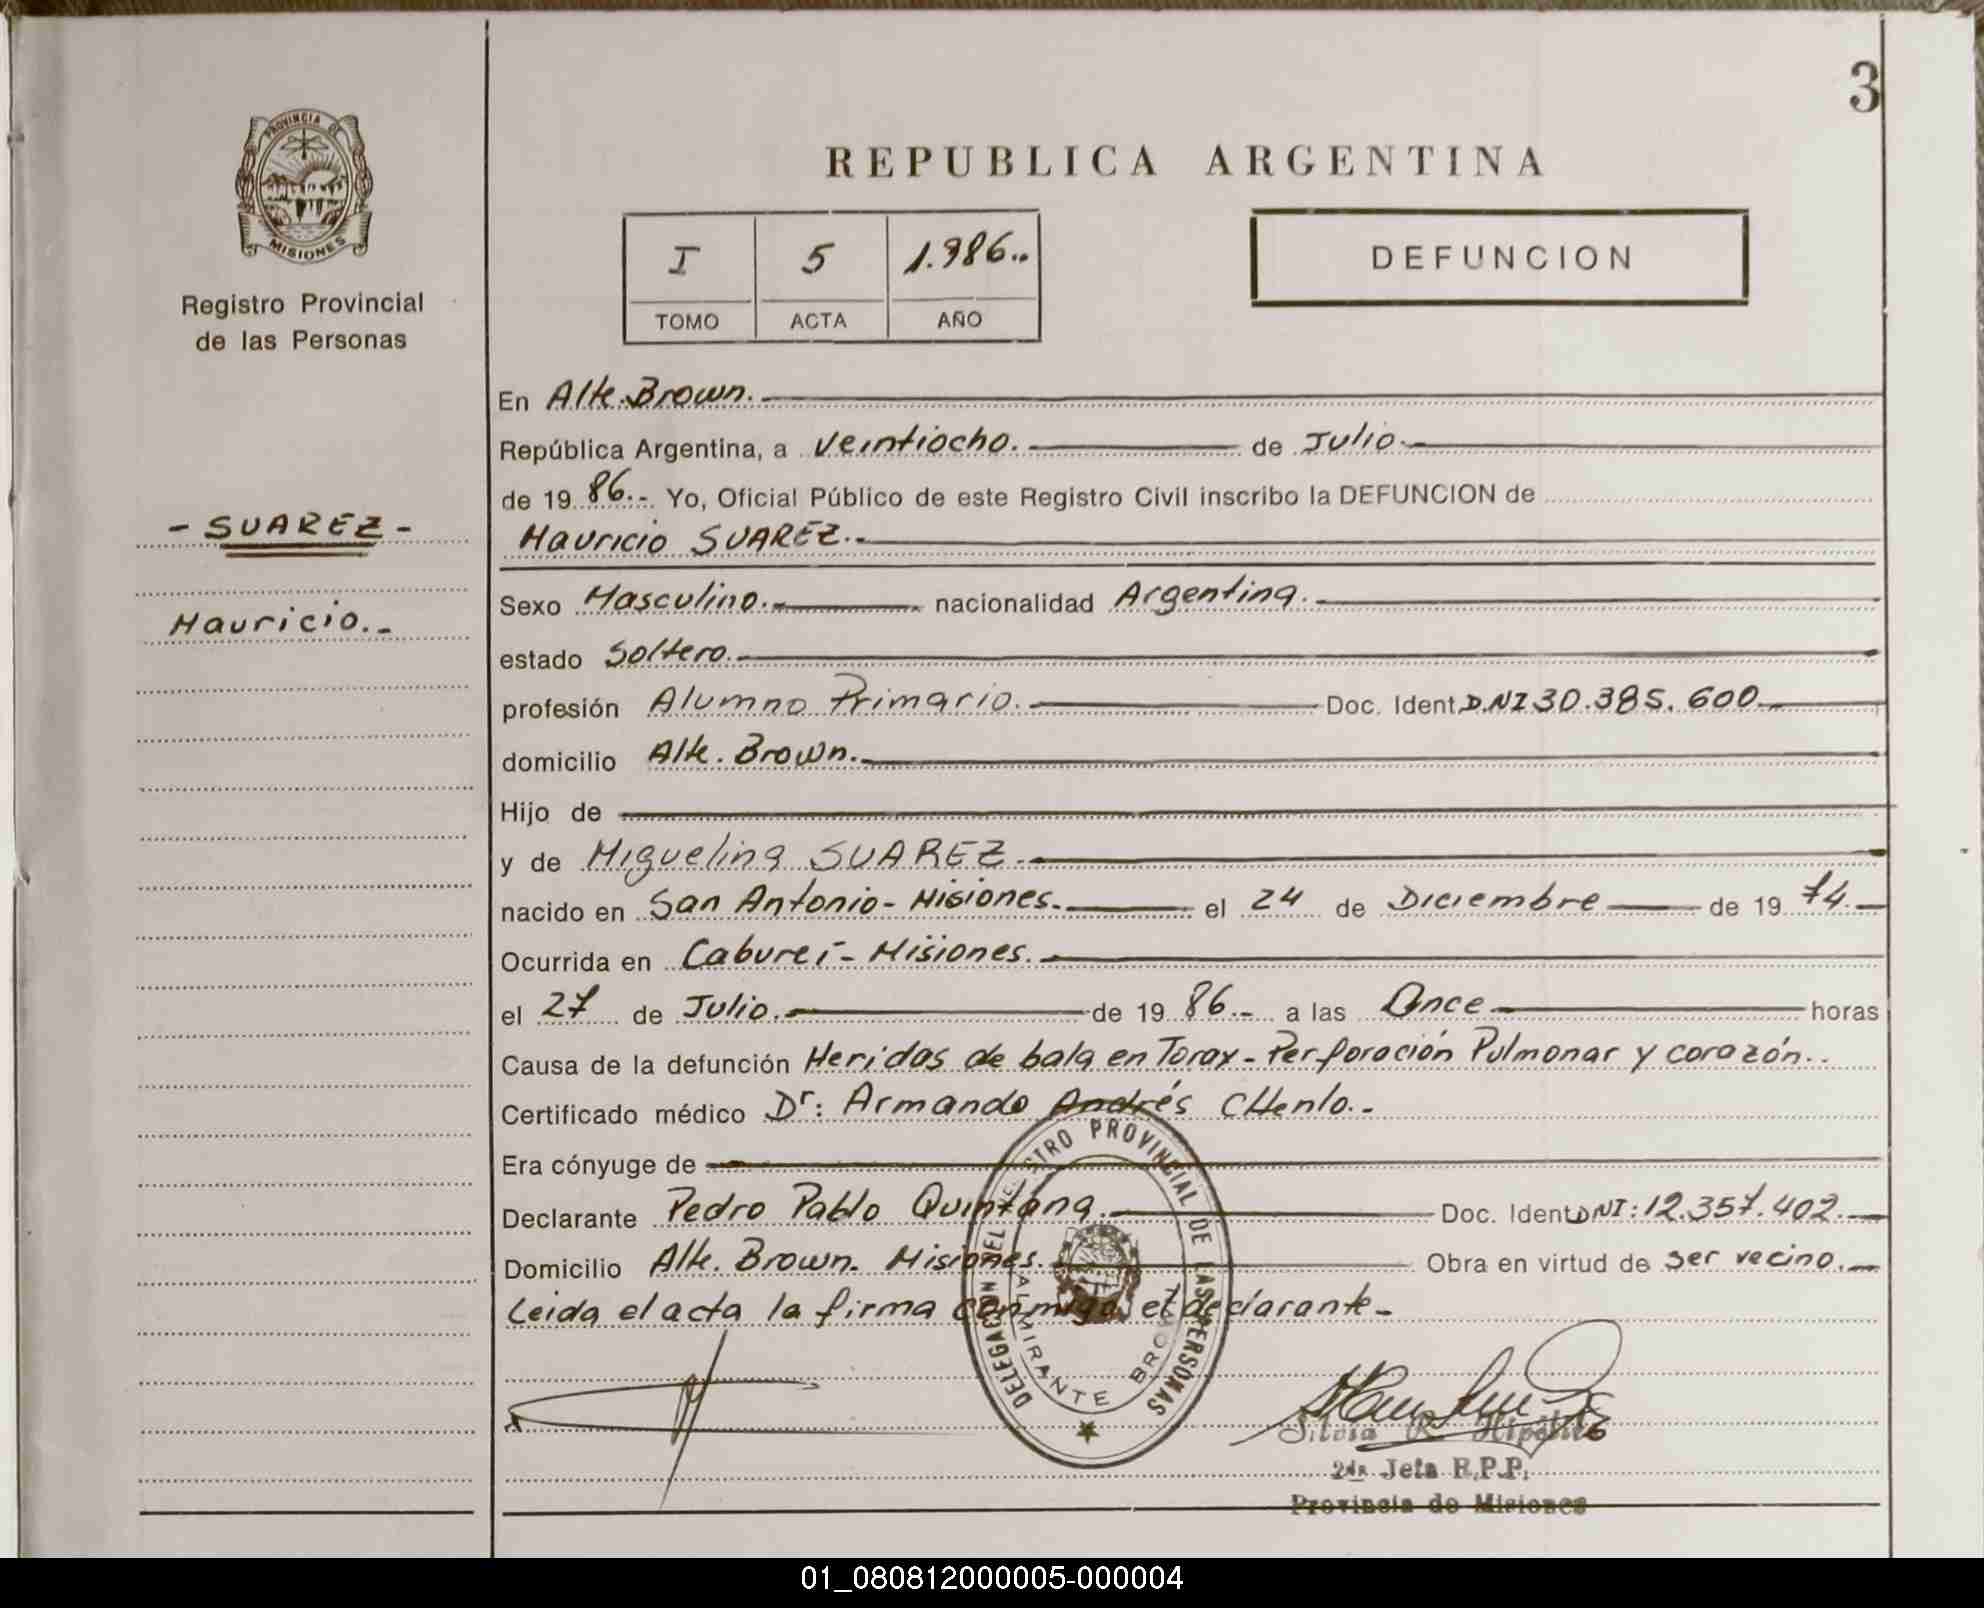 3
PROVINCIA DE
MISIONES
Registro Provincial
de las Personas
REPUBLICA ARGENTINA
I 5 1.986..
TOMO ACTA AÑO
DEFUNCION
- SUAREZ -
Mauricio.-
En Alte. Brown.
República Argentina, a Veintiocho. de Julio.
de 19 86.- Yo, Oficial Público de este Registro Civil inscribo la DEFUNCION de
Mauricio SUAREZ.-
Sexo Masculino. nacionalidad Argentina.
estado Soltero.
profesión Alumno Primario. Doc. Ident. D.NI 30.385.600
domicilio Alte. Brown.
Hijo de
y de Miguelina SUAREZ.
nacido en San Antonio - Misiones. el 24 de Diciembre de 19 74.
Ocurrida en Cabureí - Misiones.
el 27 de Julio. de 19 86.- a las Once horas
Causa de la defunción Heridas de bala en Torax - Perforación Pulmonar y corazón..
Certificado médico Dr: Armando Andrés CHenlo.-
Era cónyuge de
Declarante Pedro Pablo Quintana. Doc. Ident. DNI: 12.357.402.
Domicilio Alte. Brown. Misiones. Obra en virtud de ser vecino.
Leida el acta la firma conmigo el declarante-
DELEGACION DEL REGISTRO PROVINCIAL DE LAS PERSONAS
ALMIRANTE BROWN
Silvia R. Hipólito
2da Jefa R.P.P.
Provincia de Misiones
01_080812000005-000004